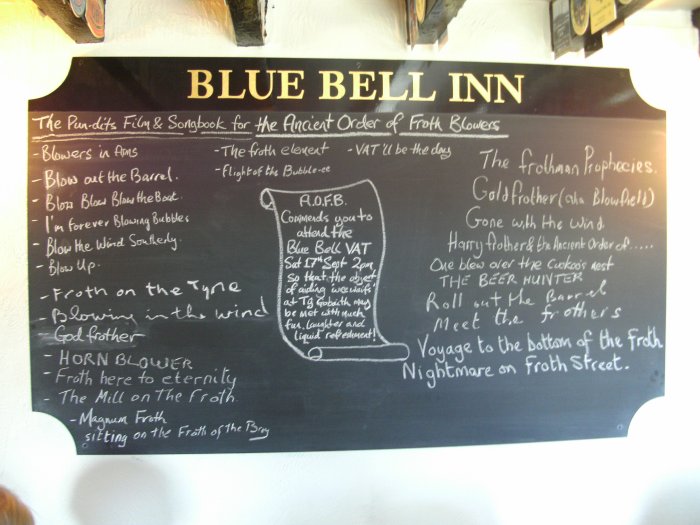 BLUE BELL INN
The Pun-dits Film & Songbook for the Ancient Order of Froth Blowers
- Blowers in Arms
- Blow out the Barrel.
- Blow Blow Blow the Boat
- I'm Forever Blowing Bubbles
- Blow the Wind Southerly.
- Blow Up.
- Froth on the Tyne
- Blowing in the wind
- Godfrother
- HORN BLOWER
- Froth here to eternity
- The Mill on the Froth
- Magnum Froth
sitting on the Froth of the Bay
- The froth element
- Flight of the Bubble-ee
- VAT'll be the day
A.O.F.B.
Commends you to
attend the
Blue Bell VAT
Sat 17th Sept 2pm
So that the object
of aiding wee waifs
at Tŷ Gobaith may
be met with much
fun, laughter and
liquid refreshment!
The frothman Prophecies.
Goldfrother (aka Blowfield)
Gone with the wind
Harry frother & the Ancient Order of.....
One blew over the Cuckoo's nest
THE BEER HUNTER
Roll out the Barrel
Meet the frothers
Voyage to the bottom of the froth
Nightmare on Froth Street.